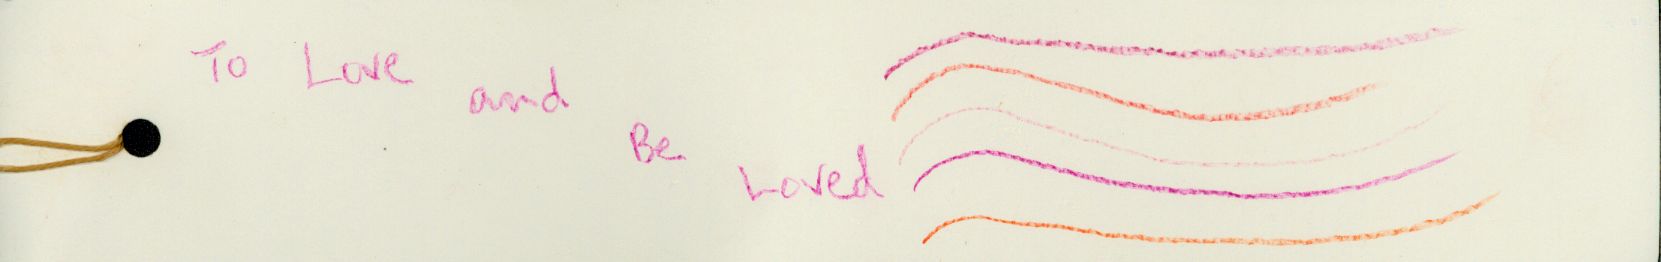 To Love and Be Loved